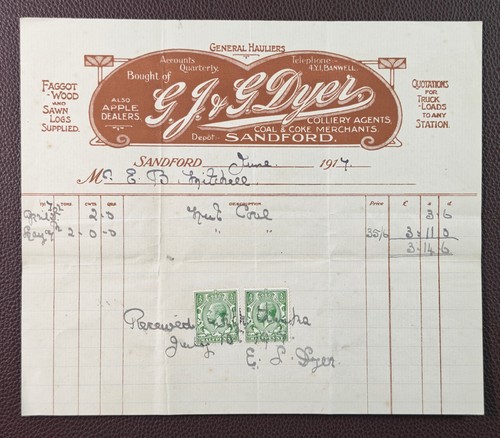 GENERAL HAULIERS
Accounts Quarterly.
Telephone 4.Y.1. BANWELL.
Bought of
G. J. & G. Dyer,
FAGGOT-WOOD AND SAWN LOGS SUPPLIED.
ALSO APPLE DEALERS.
COLLIERY AGENTS,
COAL & COKE MERCHANTS.
Depôt SANDFORD.
QUOTATIONS FOR TRUCK-LOADS TO ANY STATION.
SANDFORD June 1917.
M E B Mitchell
TONS CWTS QRS DESCRIPTION Price £ s d
2-0 Nut Coal 3-6
2-0-0 " " 35/6 3-11 0
3-14-6
Received with Thanks
E. L. Dyer